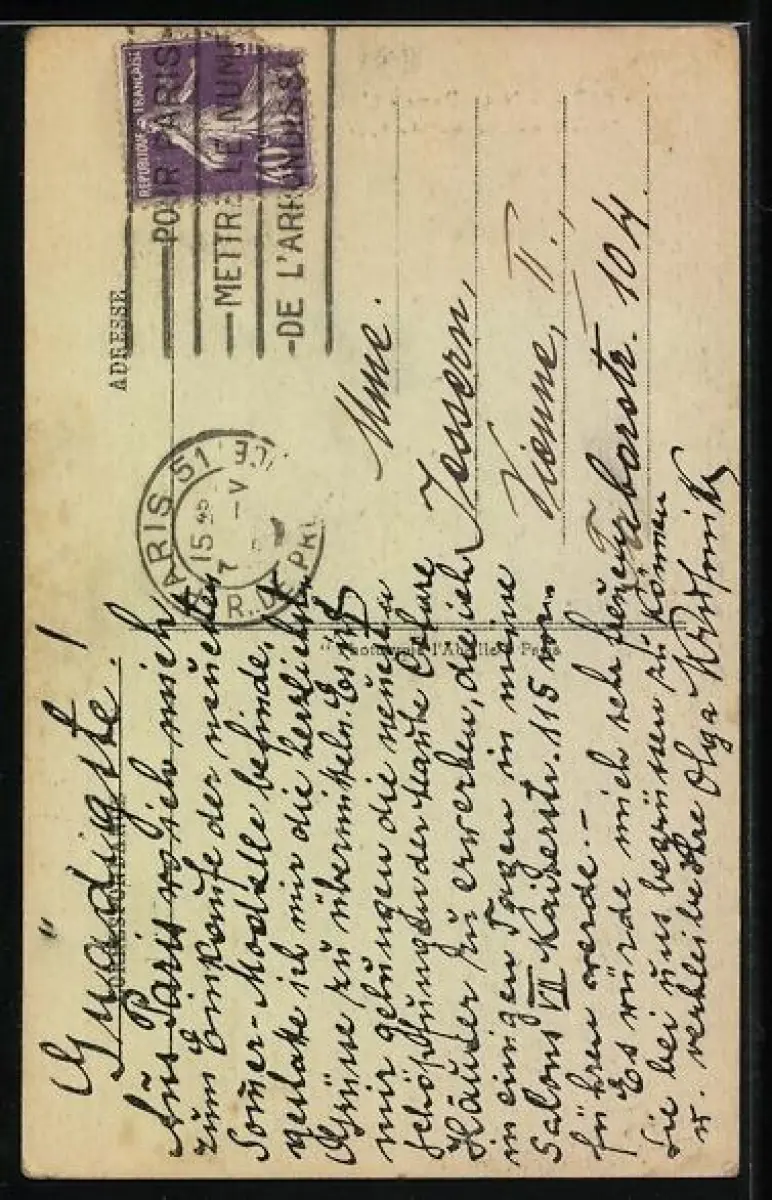 REPUBLIQUE FRANÇAISE
40c
POUR PARIS
METTRE LE NUM
DE L'ARRONDISSE
PARIS 51
15
7 -V
R. DE PR
ADRESSE
Mme.
Jessern,
Vienne, II.,
Taborstr. 104.
Gnädigste!
Aus Paris wo ich mich
zum Einkaufe der neuesten
Somer-Modelle befinde,
gestatte ich mir die herzlichsten
Grüsse zu übermitteln. Es ist
mir gelungen die neuesten
Schöpfungen der Haute Couture
Häuser zu erwerben, die ich
in einigen Tagen in meine
Salons VII Kaiserstr. 115 vor-
führen werde.-
Es würde mich sehr freuen
Sie bei uns begrüssen zu können
u. verbleibe Ihre Olga